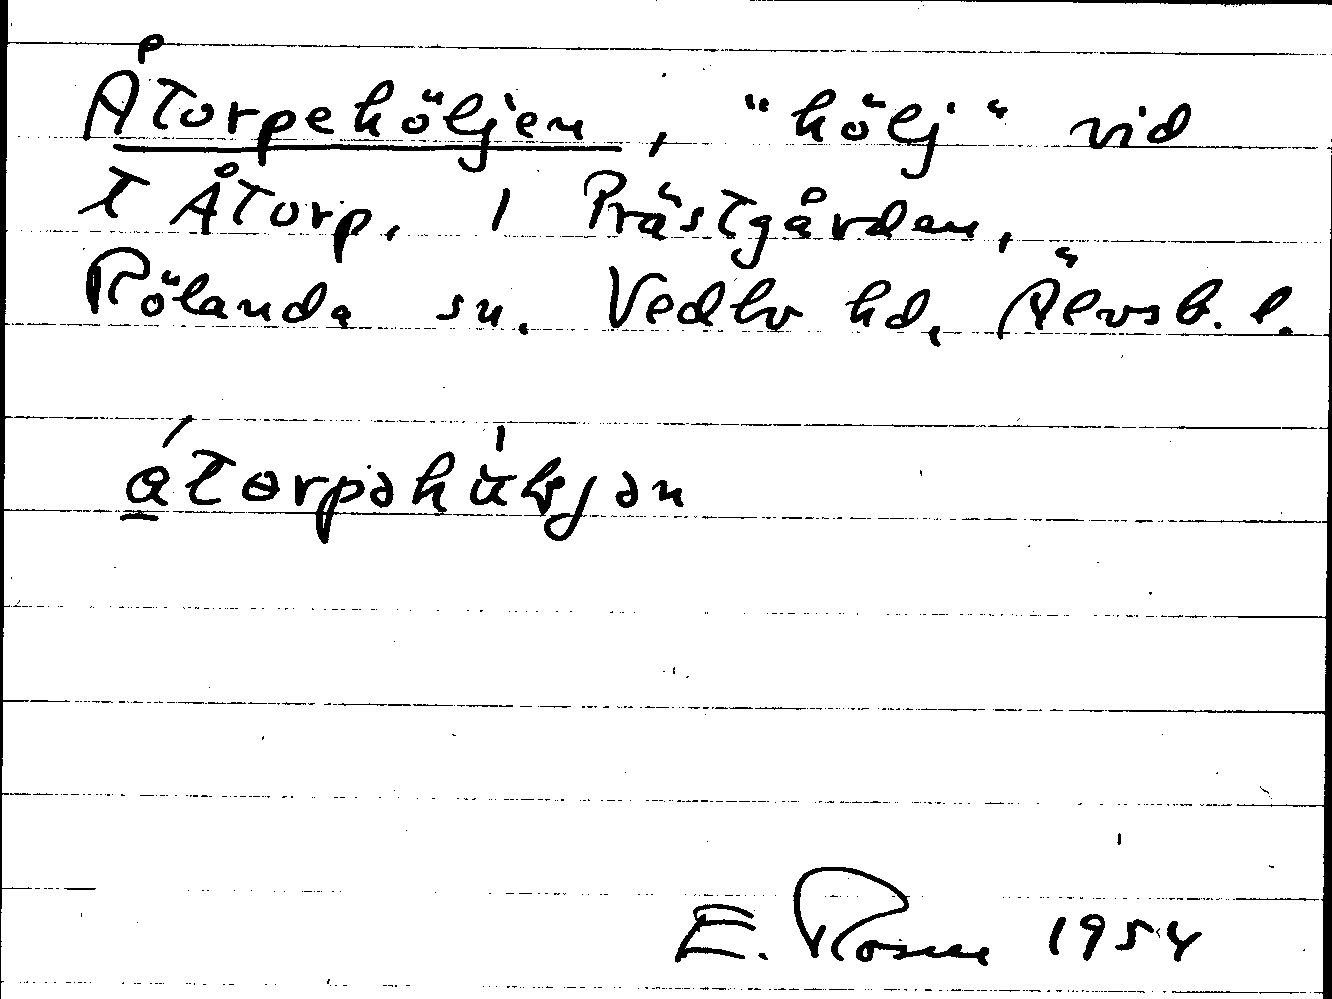 Åtorpehöljen, "hölj" vid
t Åtorp. 1 Prästgården,
Rölanda sn. Vedbo hd, Älvsb. l.
E. Rosen 1954